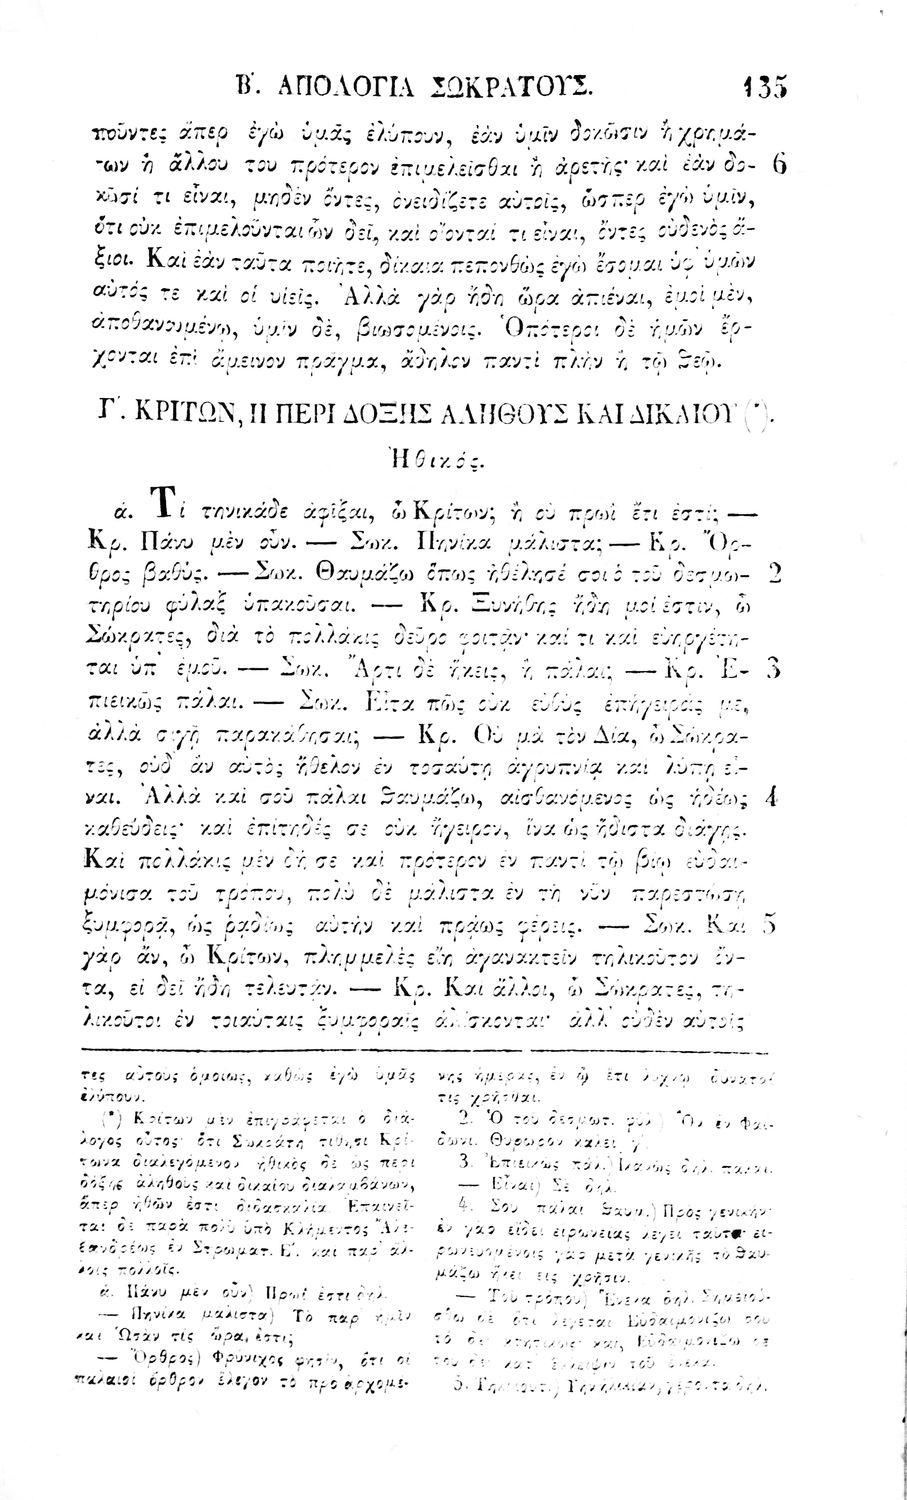 Β'. ΑΠΟΛΟΓΙΑ ΣΩΚΡΑΤΟΥΣ. 135
ποῦντες ἅπερ ἐγὼ ὑμᾶς ἐλύπουν, ἐὰν ὑμῖν δοκῶσιν ἢ χρημά-
των ἢ ἄλλου του πρότερον ἐπιμελεῖσθαι ἢ ἀρετῆς· καὶ ἐὰν δο- 6
κῶσί τι εἶναι, μηδὲν ὄντες, ὀνειδίζετε αὐτοῖς, ὥσπερ ἐγὼ ὑμῖν,
ὅτι οὐκ ἐπιμελοῦνται ὧν δεῖ, καὶ οἴονταί τι εἶναι, ὄντες οὐδενὸς ἄ-
ξιοι. Καὶ ἐὰν ταῦτα ποιῆτε, δίκαια πεπονθὼς ἐγὼ ἔσομαι ὑφ' ὑμῶν
αὐτός τε καὶ οἱ υἱεῖς. Ἀλλὰ γὰρ ἤδη ὥρα ἀπιέναι, ἐμοὶ μὲν,
ἀποθανουμένῳ, ὑμῖν δὲ, βιωσομένοις. Ὁπότεροι δὲ ἡμῶν ἔρ-
χονται ἐπὶ ἄμεινον πρᾶγμα, ἄδηλον παντὶ πλὴν ἢ τῷ θεῷ.
Γ'. ΚΡΙΤΩΝ, Η ΠΕΡΙ ΔΟΞΗΣ ΑΛΗΘΟΥΣ ΚΑΙ ΔΙΚΑΙΟΥ (*).
Ἠθικός.
ά. Τί τηνικάδε ἀφῖξαι, ὦ Κρίτων; ἢ οὐ πρωὶ ἔτι ἐστί; —
Κρ. Πάνυ μὲν οὖν. — Σωκ. Πηνίκα μάλιστα; — Κρ. Ὄρ-
θρος βαθύς. — Σωκ. Θαυμάζω ὅπως ἠθέλησέ σοι ὁ τοῦ δεσμω- 2
τηρίου φύλαξ ὑπακοῦσαι. — Κρ. Ξυνήθης ἤδη μοί ἐστιν, ὦ
Σώκρατες, διὰ τὸ πολλάκις δεῦρο φοιτᾷν· καί τι καὶ εὐηργέτη-
ται ὑπ' ἐμοῦ. — Σωκ. Ἄρτι δὲ ἥκεις, ἢ πάλαι; — Κρ. Ἐ- 3
πιεικῶς πάλαι. — Σωκ. Εἶτα πῶς οὐκ εὐθὺς ἐπήγειράς με,
ἀλλὰ σιγῇ παρακάθησαι; — Κρ. Οὐ μὰ τὸν Δία, ὦ Σώκρα-
τες, οὐδ' ἂν αὐτὸς ἤθελον ἐν τοσαύτῃ ἀγρυπνίᾳ καὶ λύπῃ εἶ-
ναι. Ἀλλὰ καὶ σοῦ πάλαι θαυμάζω, αἰσθανόμενος ὡς ἡδέως 4
καθεύδεις· καὶ ἐπίτηδές σε οὐκ ἤγειρον, ἵνα ὡς ἥδιστα διάγῃς.
Καὶ πολλάκις μὲν δή σε καὶ πρότερον ἐν παντὶ τῷ βίῳ εὐδαι-
μόνισα τοῦ τρόπου, πολὺ δὲ μάλιστα ἐν τῇ νῦν παρεστώσῃ
ξυμφορᾷ, ὡς ῥᾳδίως αὐτὴν καὶ πρᾴως φέρεις. — Σωκ. Καὶ 5
γὰρ ἂν, ὦ Κρίτων, πλημμελὲς εἴη ἀγανακτεῖν τηλικοῦτον ὄν-
τα, εἰ δεῖ ἤδη τελευτᾷν. — Κρ. Καὶ ἄλλοι, ὦ Σώκρατες, τη-
λικοῦτοι ἐν τοιαύταις ξυμφοραῖς ἁλίσκονται· ἀλλ' οὐδὲν αὐτοῖς
τες αὐτοὺς ὁμοίως, καθὼς ἐγὼ ὑμᾶς
ἐλύπουν.
(*) Κρίτων μὲν ἐπιγράφεται ὁ διά-
λογος οὗτος· ὅτι Σωκράτη τίθησι Κρί-
τωνα διαλεγόμενον· ἠθικὸς δὲ ὡς περὶ
δόξης ἀληθοῦς καὶ δικαίου διαλαμβάνων,
ἅπερ ἠθῶν ἐστι διδασκαλία. Ἐπαινεῖ-
ται δὲ παρὰ πολὺ ὑπὸ Κλήμεντος Ἀλε-
ξανδρέως ἐν Στρωματ. Ε'. καὶ παρ' ἄλ-
λοις πολλοῖς.
ά. Πάνυ μὲν οὖν) Πρωί ἐστι δηλ.
— Πηνίκα μάλιστα) Τὸ παρ' ἡμῖν
καὶ Ὡσὰν τίς ὥρα, ἐστι;
— Ὄρθρος) Φρύνιχος φησὶν, ὅτι οἱ
παλαιοὶ ὄρθρον ἔλεγον τὸ πρὸ ἀρχομέ-
νης ἡμέρας, ἐν ᾧ ἔτι λύχνῳ δύναταί
τις χρῆσθαι.
2. Ὁ τοῦ δεσμωτ. φύλ.) Ὃν ἐν Φαί-
δωνι. Θυρωρὸν καλεῖ γ'.
3. Ἐπιεικῶς πάλ.) Ἱκανῶς δηλ. πάλαι.
— Εἶναι) Σὲ δηλ.
4. Σοῦ πάλαι θαυμ.) Πρὸς γενικὴν·
ἐν γὰρ εἴδει εἰρωνείας λέγει ταῦτα· εἰ-
ρωνευομένοις γὰρ μετὰ γενικῆς τὸ θαυ-
μάζω ἥκει εἰς χρῆσιν.
— Τοῦ τρόπου) Ἕνεκα δηλ. Σημειοῦ-
σθω δὲ ὅτι λέγεται Εὐδαιμονίζω σου